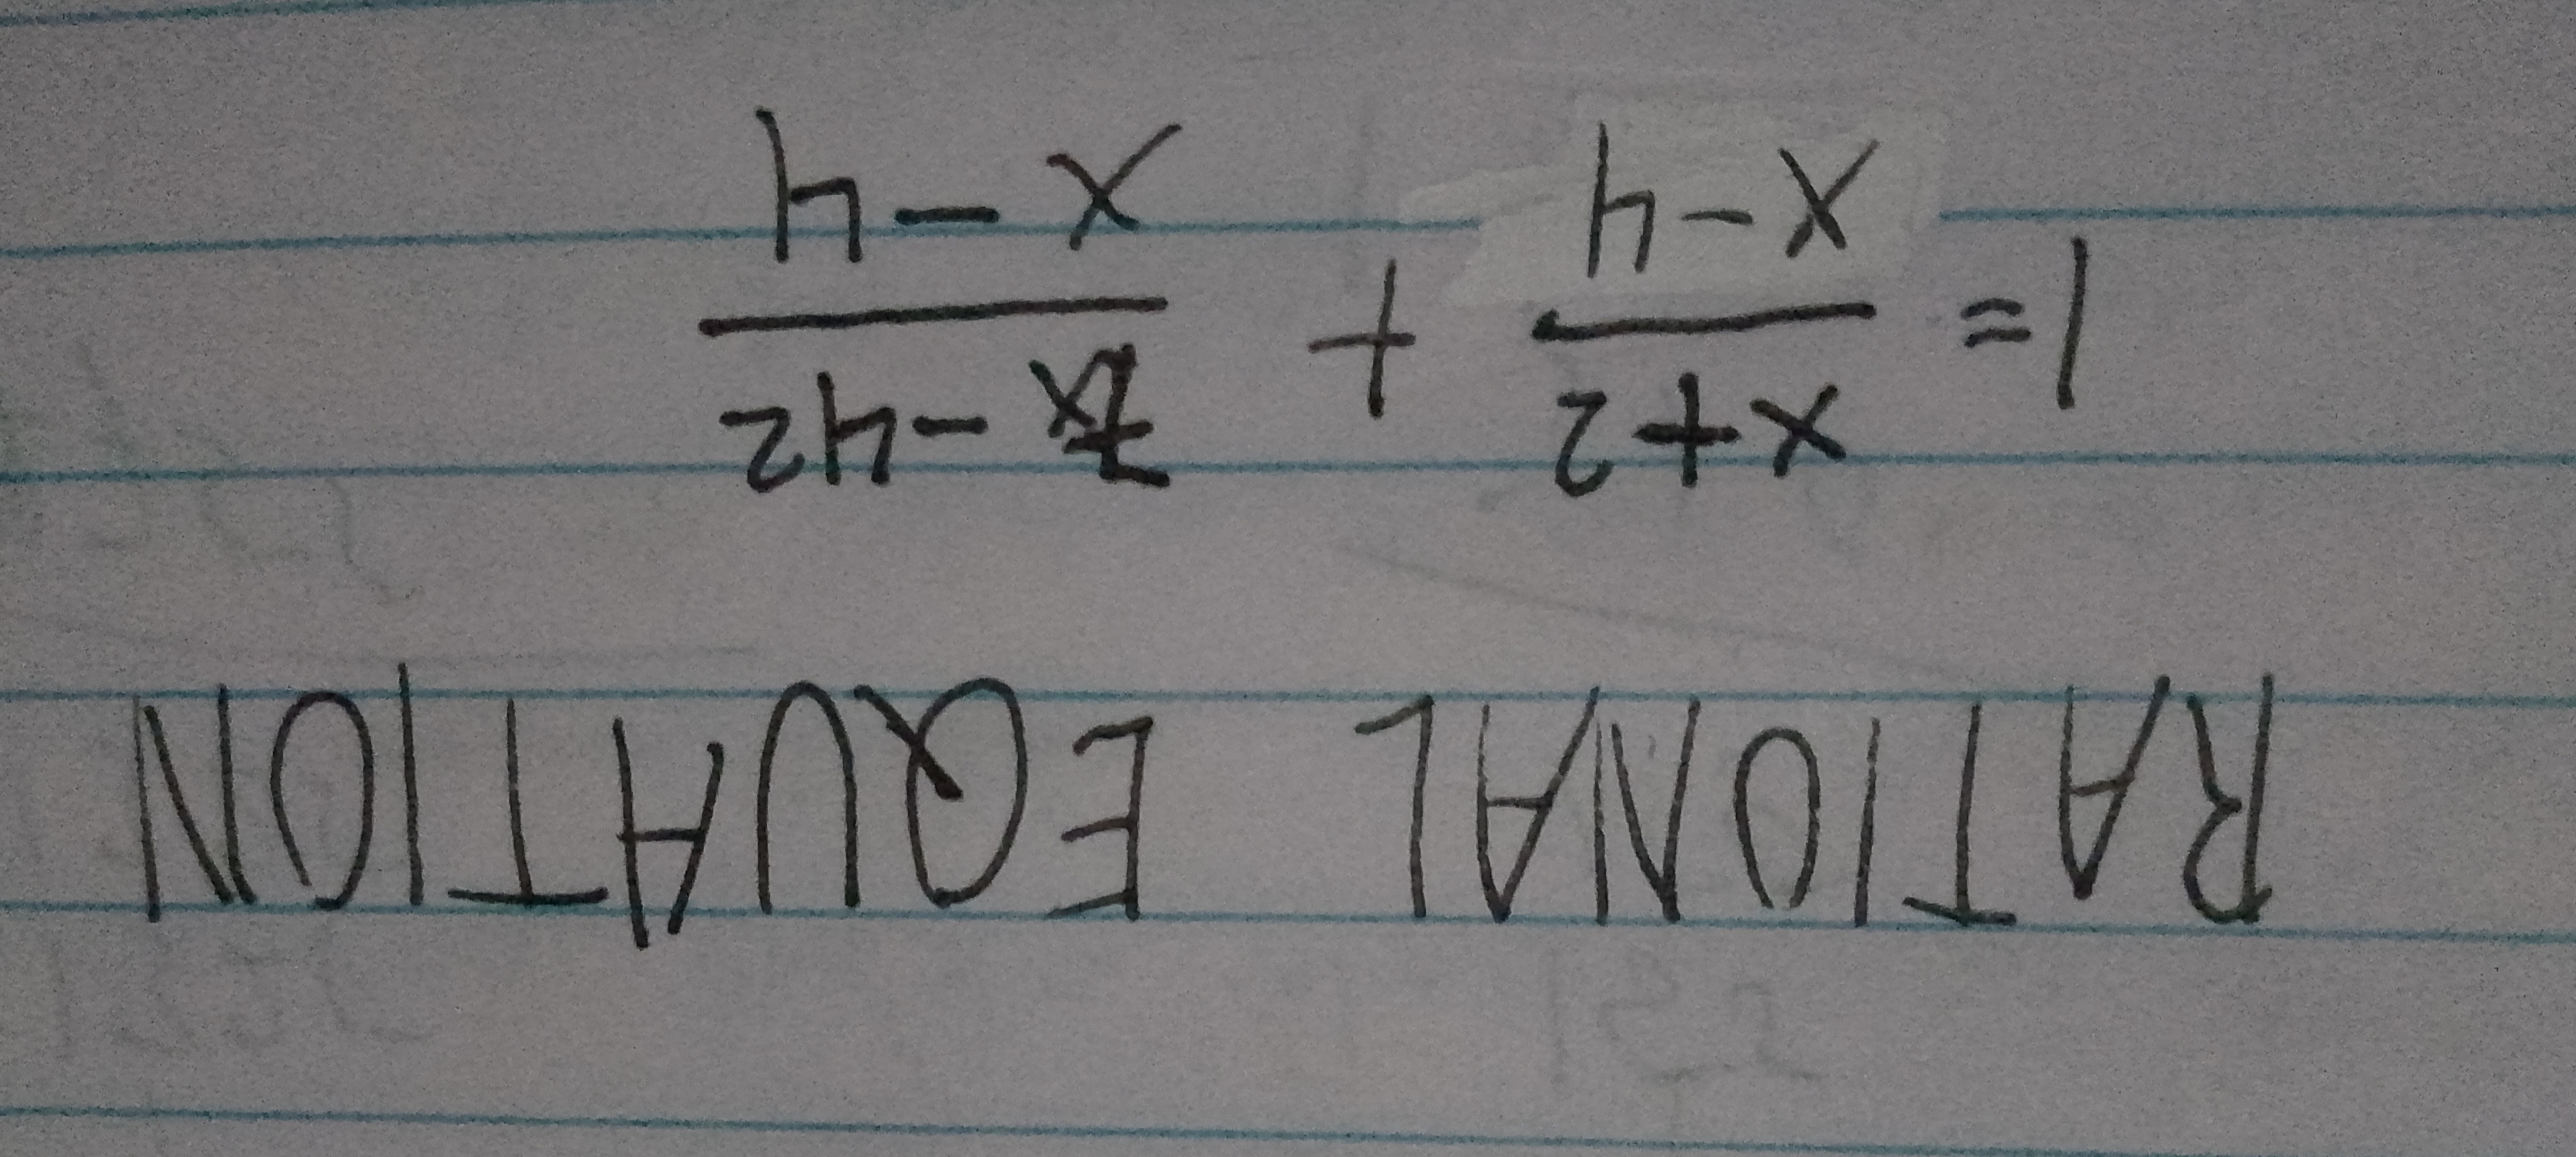 RATIONAL EQUATION
x+2 7x-42
1= + 
x-4 x-4